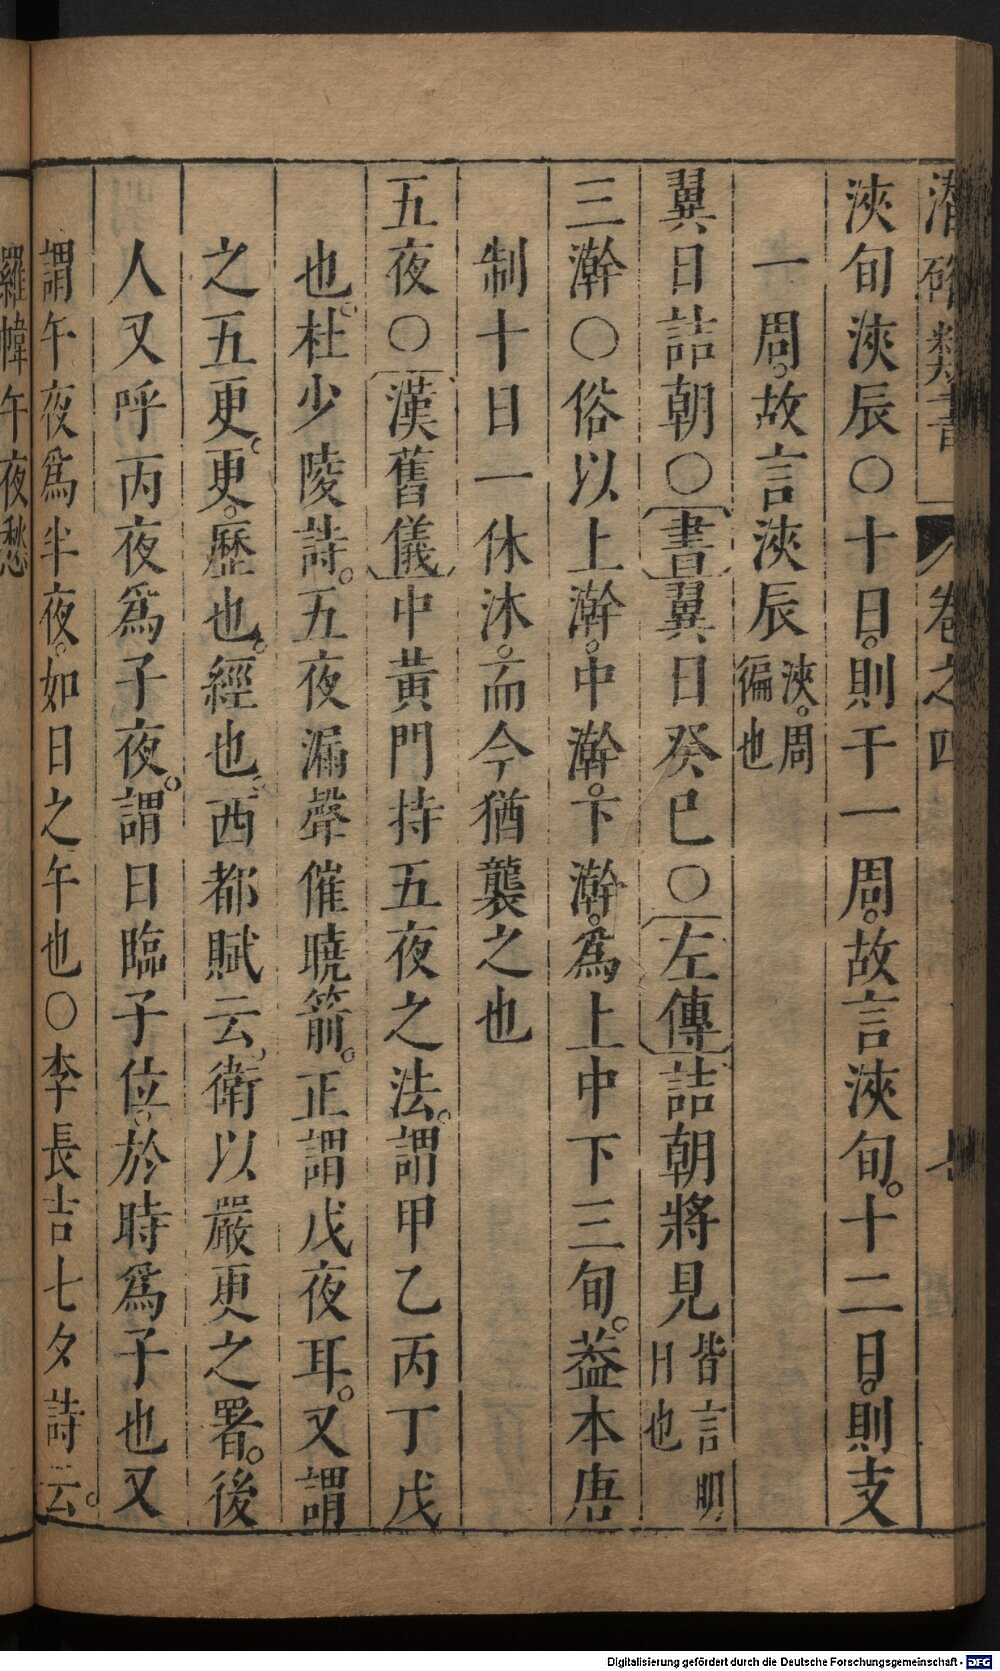 潛確類書 卷之四
浹旬浹辰○十日。則干一周。故言浹旬。十二日。則支
一周。故言浹辰浹。周徧也
翼日詰朝○書翼日癸巳○左傳詰朝將見皆言明日也
三澣○俗以上澣。中澣。下澣。為上中下三旬。葢本唐
制十日一休沐。而今猶襲之也
五夜○漢舊儀中黃門持五夜之法。謂甲乙丙丁戊
也。杜少陵詩。五夜漏聲催曉箭。正謂戊夜耳。又謂
之五更。更。歷也。經也。西都賦云。衛以嚴更之署。後
人又呼丙夜爲子夜。謂日臨子位。於時爲子也又
謂午夜爲半夜。如日之午也○李長吉七夕詩云。
羅幃午夜愁
Digitalisierung gefördert durch die Deutsche Forschungsgemeinschaft - DFG